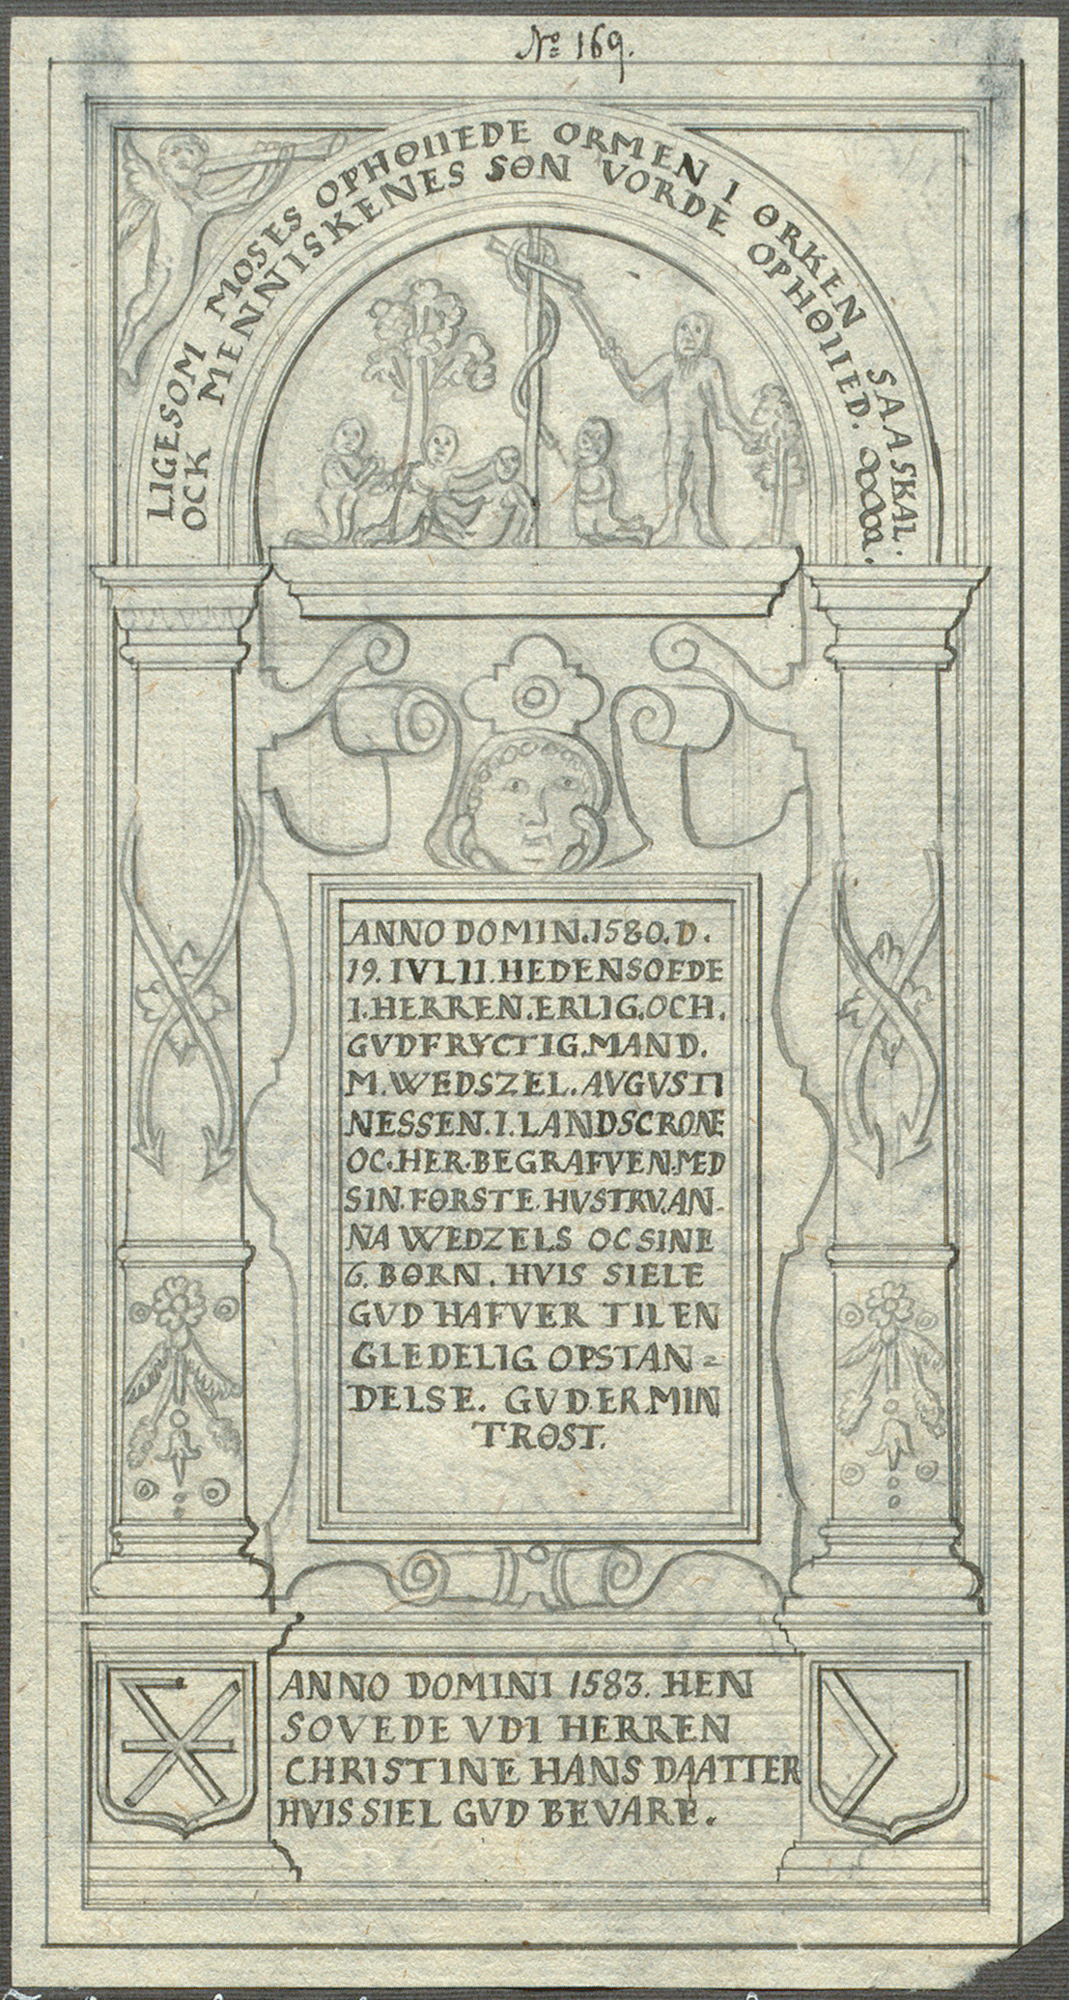 No 169.
LIGESOM MOSES OPHØIIEDE ORMEN I ØRKEN SAA SKAL.
OCK MENNISKENES SØN VORDE OPHØIIED.
ANNO DOMIN.1580.D.
19.IVLII.HEDENSOFDE
I.HERREN.ERLIG.OCH.
GVDFRYCTIG.MAND.
M.WEDSZEL.AVGVSTI
NESSEN.I.LANDSCRONE
OC.HER.BEGRAFVEN.MED
SIN.FØRSTE.HVSTRV.AN-
NA WEDZELS OC SINE
6. BØRN. HVIS SIELE
GVD HAFVER TIL EN
GLEDELIG OPSTAN=
DELSE. GVD.ER.MIN
TRØST.
ANNO DOMINI 1583. HEN
SOVEDE VDI HERREN
CHRISTINE HANS DAATTER
HVIS SIEL GVD BEVARE.